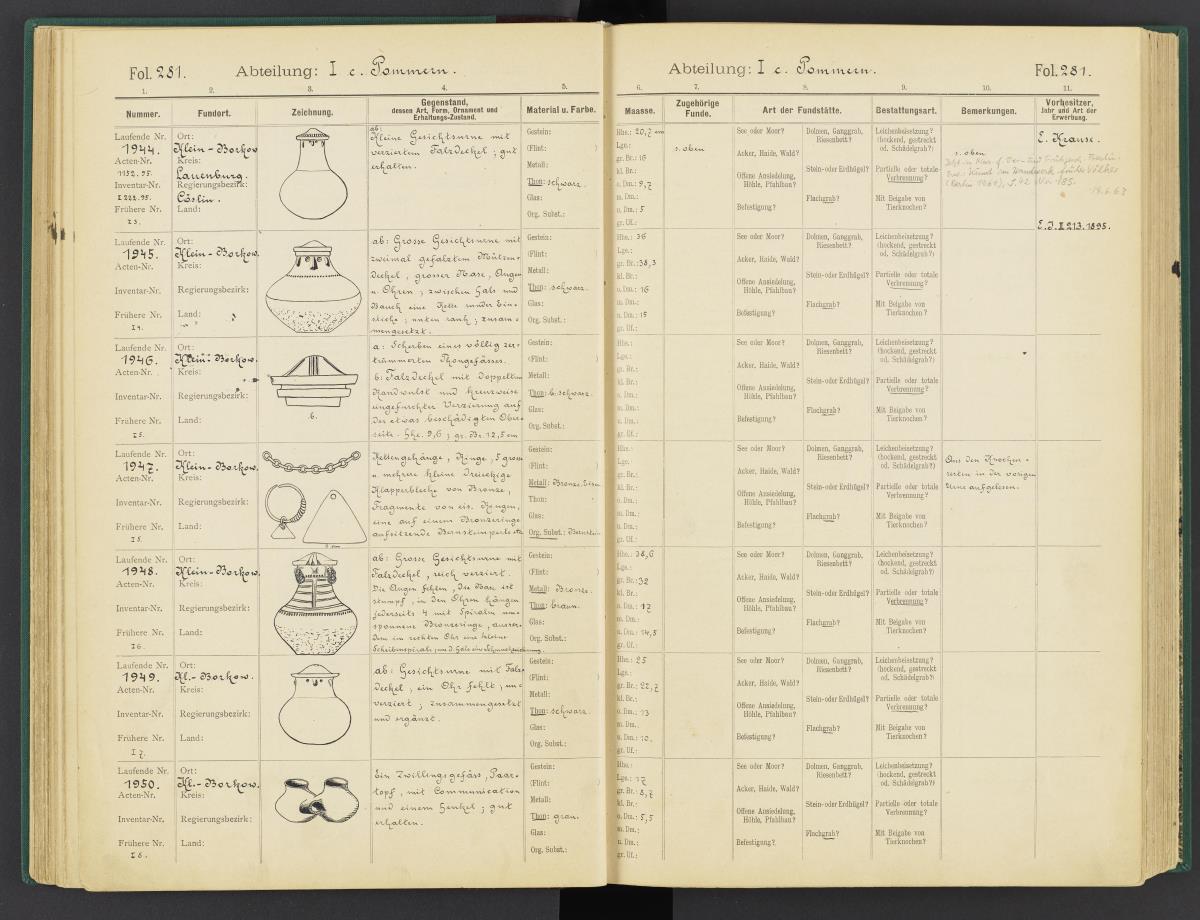 Fol. 281.
Abteilung: I c. Pommern.
1. 2. 3. 4. 5.
Nummer.
Fundort.
Zeichnung.
Gegenstand,
dessen Art, Form, Ornament und
Erhaltungs-Zustand.
Material u. Farbe.
Laufende Nr.
1944.
Acten-Nr.
1152.95.
Inventar-Nr.
I 222.95.
Frühere Nr.
I 3.
Ort:
Klein-Borkow
Kreis:
Lauenburg.
Regierungsbezirk:
Cöslin.
Land:
ab:
Kleine Gesichtsurne mit
verziertem Falzdeckel; gut
erhalten.
Gestein:
(Flint: )
Metall:
Thon: schwarz.
Glas:
Org. Subst.:
Laufende Nr.
1945.
Acten-Nr.
Inventar-Nr.
Frühere Nr.
I 4.
Ort:
Klein-Borkow.
Kreis:
Regierungsbezirk:
Land:
ab: Grosse Gesichtsurne mit
zweimal gefalztem Mützen-
deckel, grosser Nase, Augen
u. Ohren; zwischen Hals und
Bauch eine Kette runder Ein-
stiche; unten rauh; zusam-
mengesetzt.
Gestein:
(Flint: )
Metall:
Thon: schwarz.
Glas:
Org. Subst.:
Laufende Nr.
1946.
Acten-Nr.
Inventar-Nr.
Frühere Nr.
I 5.
Ort:
Klein-Borkow.
Kreis:
Regierungsbezirk:
Land:
b.
a: Scherben eines völlig zer-
trümmerten Thongefässes.
b: Falzdeckel mit doppeltem
Randwulst und kreuzweise
eingefurchter Verzierung auf
der etwas beschädigten Ober-
seite. Hhe. 9,6; gr. Br. 12,5 cm
Gestein:
(Flint: )
Metall:
Thon: b. schwarz.
Glas:
Org. Subst.:
Laufende Nr.
1947.
Acten-Nr.
Inventar-Nr.
Frühere Nr.
I 5.
Ort:
Klein-Borkow.
Kreis:
Regierungsbezirk:
Land:
Kettengehänge, Ringe, 5 grosse
u. mehrere kleine dreieckige
Klapperbleche von Bronze,
Fragmente von eis. Ringen,
eine auf einem Bronzeringe
aufsitzende Bernsteinperle etc
Gestein:
(Flint: )
Metall: Bronze, Eisen
Thon:
Glas:
Org. Subst.: Bernstein
Laufende Nr.
1948.
Acten-Nr.
Inventar-Nr.
Frühere Nr.
I 6.
Ort:
Klein-Borkow.
Kreis:
Regierungsbezirk:
Land:
ab: Grosse Gesichtsurne mit
Falzdeckel, reich verziert.
Die Augen fehlen, die Nase ist
stumpf, in den Ohren hängen
jederseits 4 mit Spiralen um-
sponnene Bronzeringe, ausser-
dem im rechten Ohr eine kleine
Scheibenspirale; um d. Hals ein Schmuckzeichnung.
Gestein:
(Flint: )
Metall: Bronze.
Thon: braun.
Glas:
Org. Subst.:
Laufende Nr.
1949.
Acten-Nr.
Inventar-Nr.
Frühere Nr.
I 7.
Ort:
Kl.-Borkow.
Kreis:
Regierungsbezirk:
Land:
ab: Gesichtsurne mit Falz-
deckel, ein Ohr fehlt; un-
verziert; zusammengesetzt
und ergänzt.
Gestein:
(Flint: )
Metall:
Thon: schwarz.
Glas:
Org. Subst.:
Laufende Nr.
1950.
Acten-Nr.
Inventar-Nr.
Frühere Nr.
I 8.
Ort:
Kl.-Borkow.
Kreis:
Regierungsbezirk:
Land:
Ein Zwillingsgefäss, Paar-
topf, mit Communication
und einem Henkel; gut
erhalten.
Gestein:
(Flint: )
Metall:
Thon: grau.
Glas:
Org. Subst.:
Abteilung: I c. Pommern.
Fol. 281.
6. 7. 8. 9. 10. 11.
Maasse.
Zugehörige
Funde.
Art der Fundstätte.
Bestattungsart.
Bemerkungen.
Vorbesitzer,
Jahr und Art der
Erwerbung.
Hhe.: 20,7 cm
Lge.:
gr. Br.: 16
kl. Br.:
o. Dm.: 9,7
m. Dm.:
u. Dm.: 5
gr. Uf.:
s. oben
See oder Moor?
Acker, Haide, Wald?
Offene Ansiedelung,
Höhle, Pfahlbau?
Befestigung?
Dolmen, Ganggrab,
Riesenbett?
Stein- oder Erdhügel?
Flachgrab?
Leichenbeisetzung?
(hockend, gestreckt
od. Schädelgrab?)
Partielle oder totale
Verbrennung?
Mit Beigabe von
Tierknochen?
s. oben
(Berlin 1964), S. 42 Nr. 185.
E. Krause.
E. J. II 213. 1895.
Hhe.: 36
Lge.:
gr. Br.: 38,3
kl. Br.:
o. Dm.: 16
m. Dm.:
u. Dm.: 15
gr. Uf.:
See oder Moor?
Acker, Haide, Wald?
Offene Ansiedelung,
Höhle, Pfahlbau?
Befestigung?
Dolmen, Ganggrab,
Riesenbett?
Stein- oder Erdhügel?
Flachgrab?
Leichenbeisetzung?
(hockend, gestreckt
od. Schädelgrab?)
Partielle oder totale
Verbrennung?
Mit Beigabe von
Tierknochen?
Hhe.:
Lge.:
gr. Br.:
kl. Br.:
o. Dm.:
m. Dm.:
u. Dm.:
gr. Uf.:
See oder Moor?
Acker, Haide, Wald?
Offene Ansiedelung,
Höhle, Pfahlbau?
Befestigung?
Dolmen, Ganggrab,
Riesenbett?
Stein- oder Erdhügel?
Flachgrab?
Leichenbeisetzung?
(hockend, gestreckt
od. Schädelgrab?)
Partielle oder totale
Verbrennung?
Mit Beigabe von
Tierknochen?
Hhe.:
Lge.:
gr. Br.:
kl. Br.:
o. Dm.:
m. Dm.:
u. Dm.:
gr. Uf.:
See oder Moor?
Acker, Haide, Wald?
Offene Ansiedelung,
Höhle, Pfahlbau?
Befestigung?
Dolmen, Ganggrab,
Riesenbett?
Stein- oder Erdhügel?
Flachgrab?
Leichenbeisetzung?
(hockend, gestreckt
od. Schädelgrab?)
Partielle oder totale
Verbrennung?
Mit Beigabe von
Tierknochen?
Aus den Knochen-
resten in der vorigen
Urne aufgelesen.
Hhe.: 38,6
Lge.:
gr. Br.: 32
kl. Br.:
o. Dm.: 17
m. Dm.:
u. Dm.: 14,5
gr. Uf.:
See oder Moor?
Acker, Haide, Wald?
Offene Ansiedelung,
Höhle, Pfahlbau?
Befestigung?
Dolmen, Ganggrab,
Riesenbett?
Stein- oder Erdhügel?
Flachgrab?
Leichenbeisetzung?
(hockend, gestreckt
od. Schädelgrab?)
Partielle oder totale
Verbrennung?
Mit Beigabe von
Tierknochen?
Hhe.: 25
Lge.:
gr. Br.: 22,7
kl. Br.:
o. Dm.: 13
m. Dm.:
u. Dm.: 10.
gr. Uf.:
See oder Moor?
Acker, Haide, Wald?
Offene Ansiedelung,
Höhle, Pfahlbau?
Befestigung?
Dolmen, Ganggrab,
Riesenbett?
Stein- oder Erdhügel?
Flachgrab?
Leichenbeisetzung?
(hockend, gestreckt
od. Schädelgrab?)
Partielle oder totale
Verbrennung?
Mit Beigabe von
Tierknochen?
Hhe.:
Lge.: 17
gr. Br.: 8,7
kl. Br.:
o. Dm.: 5,5
m. Dm.:
u. Dm.:
gr. Uf.:
See oder Moor?
Acker, Haide, Wald?
Offene Ansiedelung,
Höhle, Pfahlbau?
Befestigung?
Dolmen, Ganggrab,
Riesenbett?
Stein- oder Erdhügel?
Flachgrab?
Leichenbeisetzung?
(hockend, gestreckt
od. Schädelgrab?)
Partielle oder totale
Verbrennung?
Mit Beigabe von
Tierknochen?